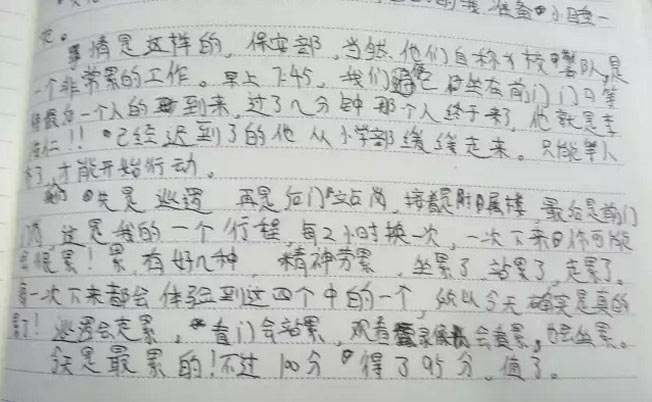 的我，准备小睡一
吧。
事情是这样的，保安部，当然他们自称为校警队，是
一个非常累的工作。早上7:45，我们坐在前门门口等
待最后一个人的到来，过了几分钟那个人终于来了，他就是李
仁!!已经迟到了的他从小学部缓缓走来。只能等人
，才能开始行动。
先是巡逻 再是后门站岗，接着是附属楼，最后是前门
，这是我的一个行程，每2小时换一次，一次下来你可能
会很累！累，有好几种，精神劳累，坐累了，站累了，走累了。
每一次下来都会体验到这四个中的一个，所以今天确实是真的
累了！巡逻会走累，看门会站累，观看录像会坐累。
今天是最累的！不过100分得了95分，值了。